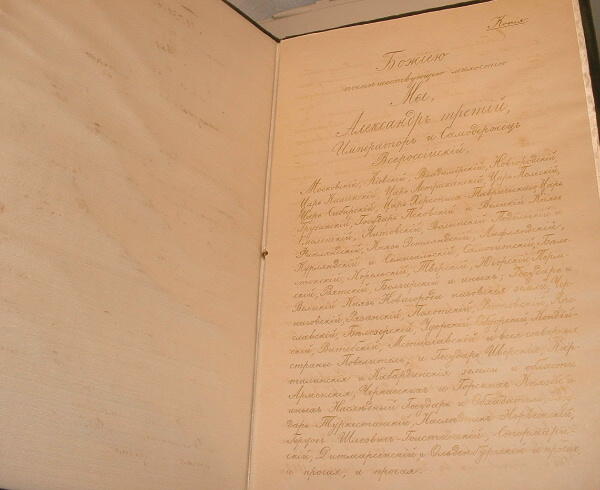 Копія
Божіею
поспѣшествующею милостію
Мы,
Александръ третій,
Императоръ и Самодержецъ
Всероссійскій,
Московскій, Кіевскій, Владимірскій, Новгородскій,
Царь Казанскій, Царь Астраханскій, Царь Польскій,
Царь Сибирскій, Царь Херсониса Таврическаго, Царь
Грузинскій, Государь Псковскій и Великій Князь
Смоленскій, Литовскій, Волынскій, Подольскій и
Финляндскій, Князь Эстляндскій, Лифляндскій,
Курляндскій и Семигальскій, Самогитскій, Бѣло-
стокскій, Корельскій, Тверскій, Югорскій, Перм-
скій, Вятскій, Болгарскій и иныхъ; Государь и
Великій Князь Новагорода низовскія земли, Чер-
ниговскій, Рязанскій, Полотскій, Ростовскій, Яро-
славскій, Бѣлозерскій, Удорскій, Обдорскій, Кондій-
скій, Витебскій, Мстиславскій и всея сѣверныя
страны Повелитель; и Государь Иверскія, Кар-
талинскія и Кабардинскія земли и области
Арменскія, Черкасскихъ и Горскихъ Князей и
иныхъ Наслѣдный Государь и Обладатель, Госу-
дарь Туркестанскій, Наслѣдникъ Норвежскій,
Герцогъ Шлезвигъ-Голстинскій, Стормарн-
скій, Дитмарсенскій и Ольденбургскій и прочая,
и прочая, и прочая.